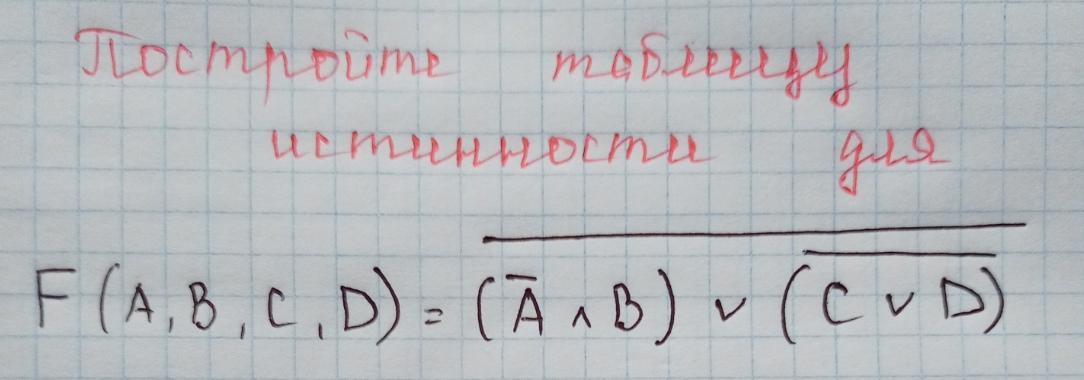 Постройте таблицу
истинности для
F(A, B, C, D) = \overline{(\overline{A} ∧ B) ∨ (\overline{C ∨ D})}